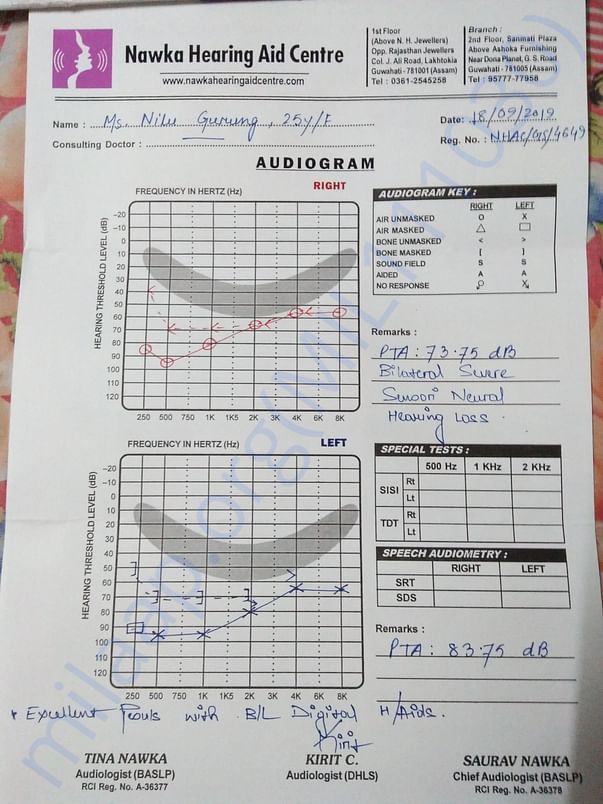 Nawka Hearing Aid Centre
www.nawkahearingaidcentre.com
1st Floor
(Above N. H. Jewellers)
Opp. Rajasthan Jewellers
Col. J. Ali Road, Lakhtokia
Guwahati - 781001 (Assam)
Tel : 0361-2545258
Branch :
2nd Floor, Sanmati Plaza
Above Ashoka Furnishing
Near Dona Planet, G. S. Road
Guwahati - 781005 (Assam)
Tel : 95777-77958
Name : Ms. Nilu Gurung, 25y/F
Date: 18/09/2019
Consulting Doctor :
Reg. No. : NHAC/GS/4649
AUDIOGRAM
FREQUENCY IN HERTZ (Hz)
RIGHT
HEARING THRESHOLD LEVEL (dB)
-20
-10
0
10
20
30
40
50
60
70
80
90
100
110
120
250 500 750 1K 1K5 2K 3K 4K 6K 8K
AUDIOGRAM KEY :
RIGHT LEFT
AIR UNMASKED O X
AIR MASKED △ □
BONE UNMASKED < >
BONE MASKED [ ]
SOUND FIELD S S
AIDED A A
NO RESPONSE
Remarks :
PTA : 73.75 dB
Bilateral
Neural
Hearing Loss.
FREQUENCY IN HERTZ (Hz)
LEFT
HEARING THRESHOLD LEVEL (dB)
-20
-10
0
10
20
30
40
50
60
70
80
90
100
110
120
250 500 750 1K 1K5 2K 3K 4K 6K 8K
SPECIAL TESTS :
500 Hz 1 KHz 2 KHz
SISI Rt
Lt
TDT Rt
Lt
SPEECH AUDIOMETRY :
RIGHT LEFT
SRT
SDS
Remarks :
PTA : 83.75 dB
* Excellent with B/L Digital H/Aids.
TINA NAWKA
Audiologist (BASLP)
RCI Reg. No. A-36377
KIRIT C.
Audiologist (DHLS)
SAURAV NAWKA
Chief Audiologist (BASLP)
RCI Reg. No. A-36378